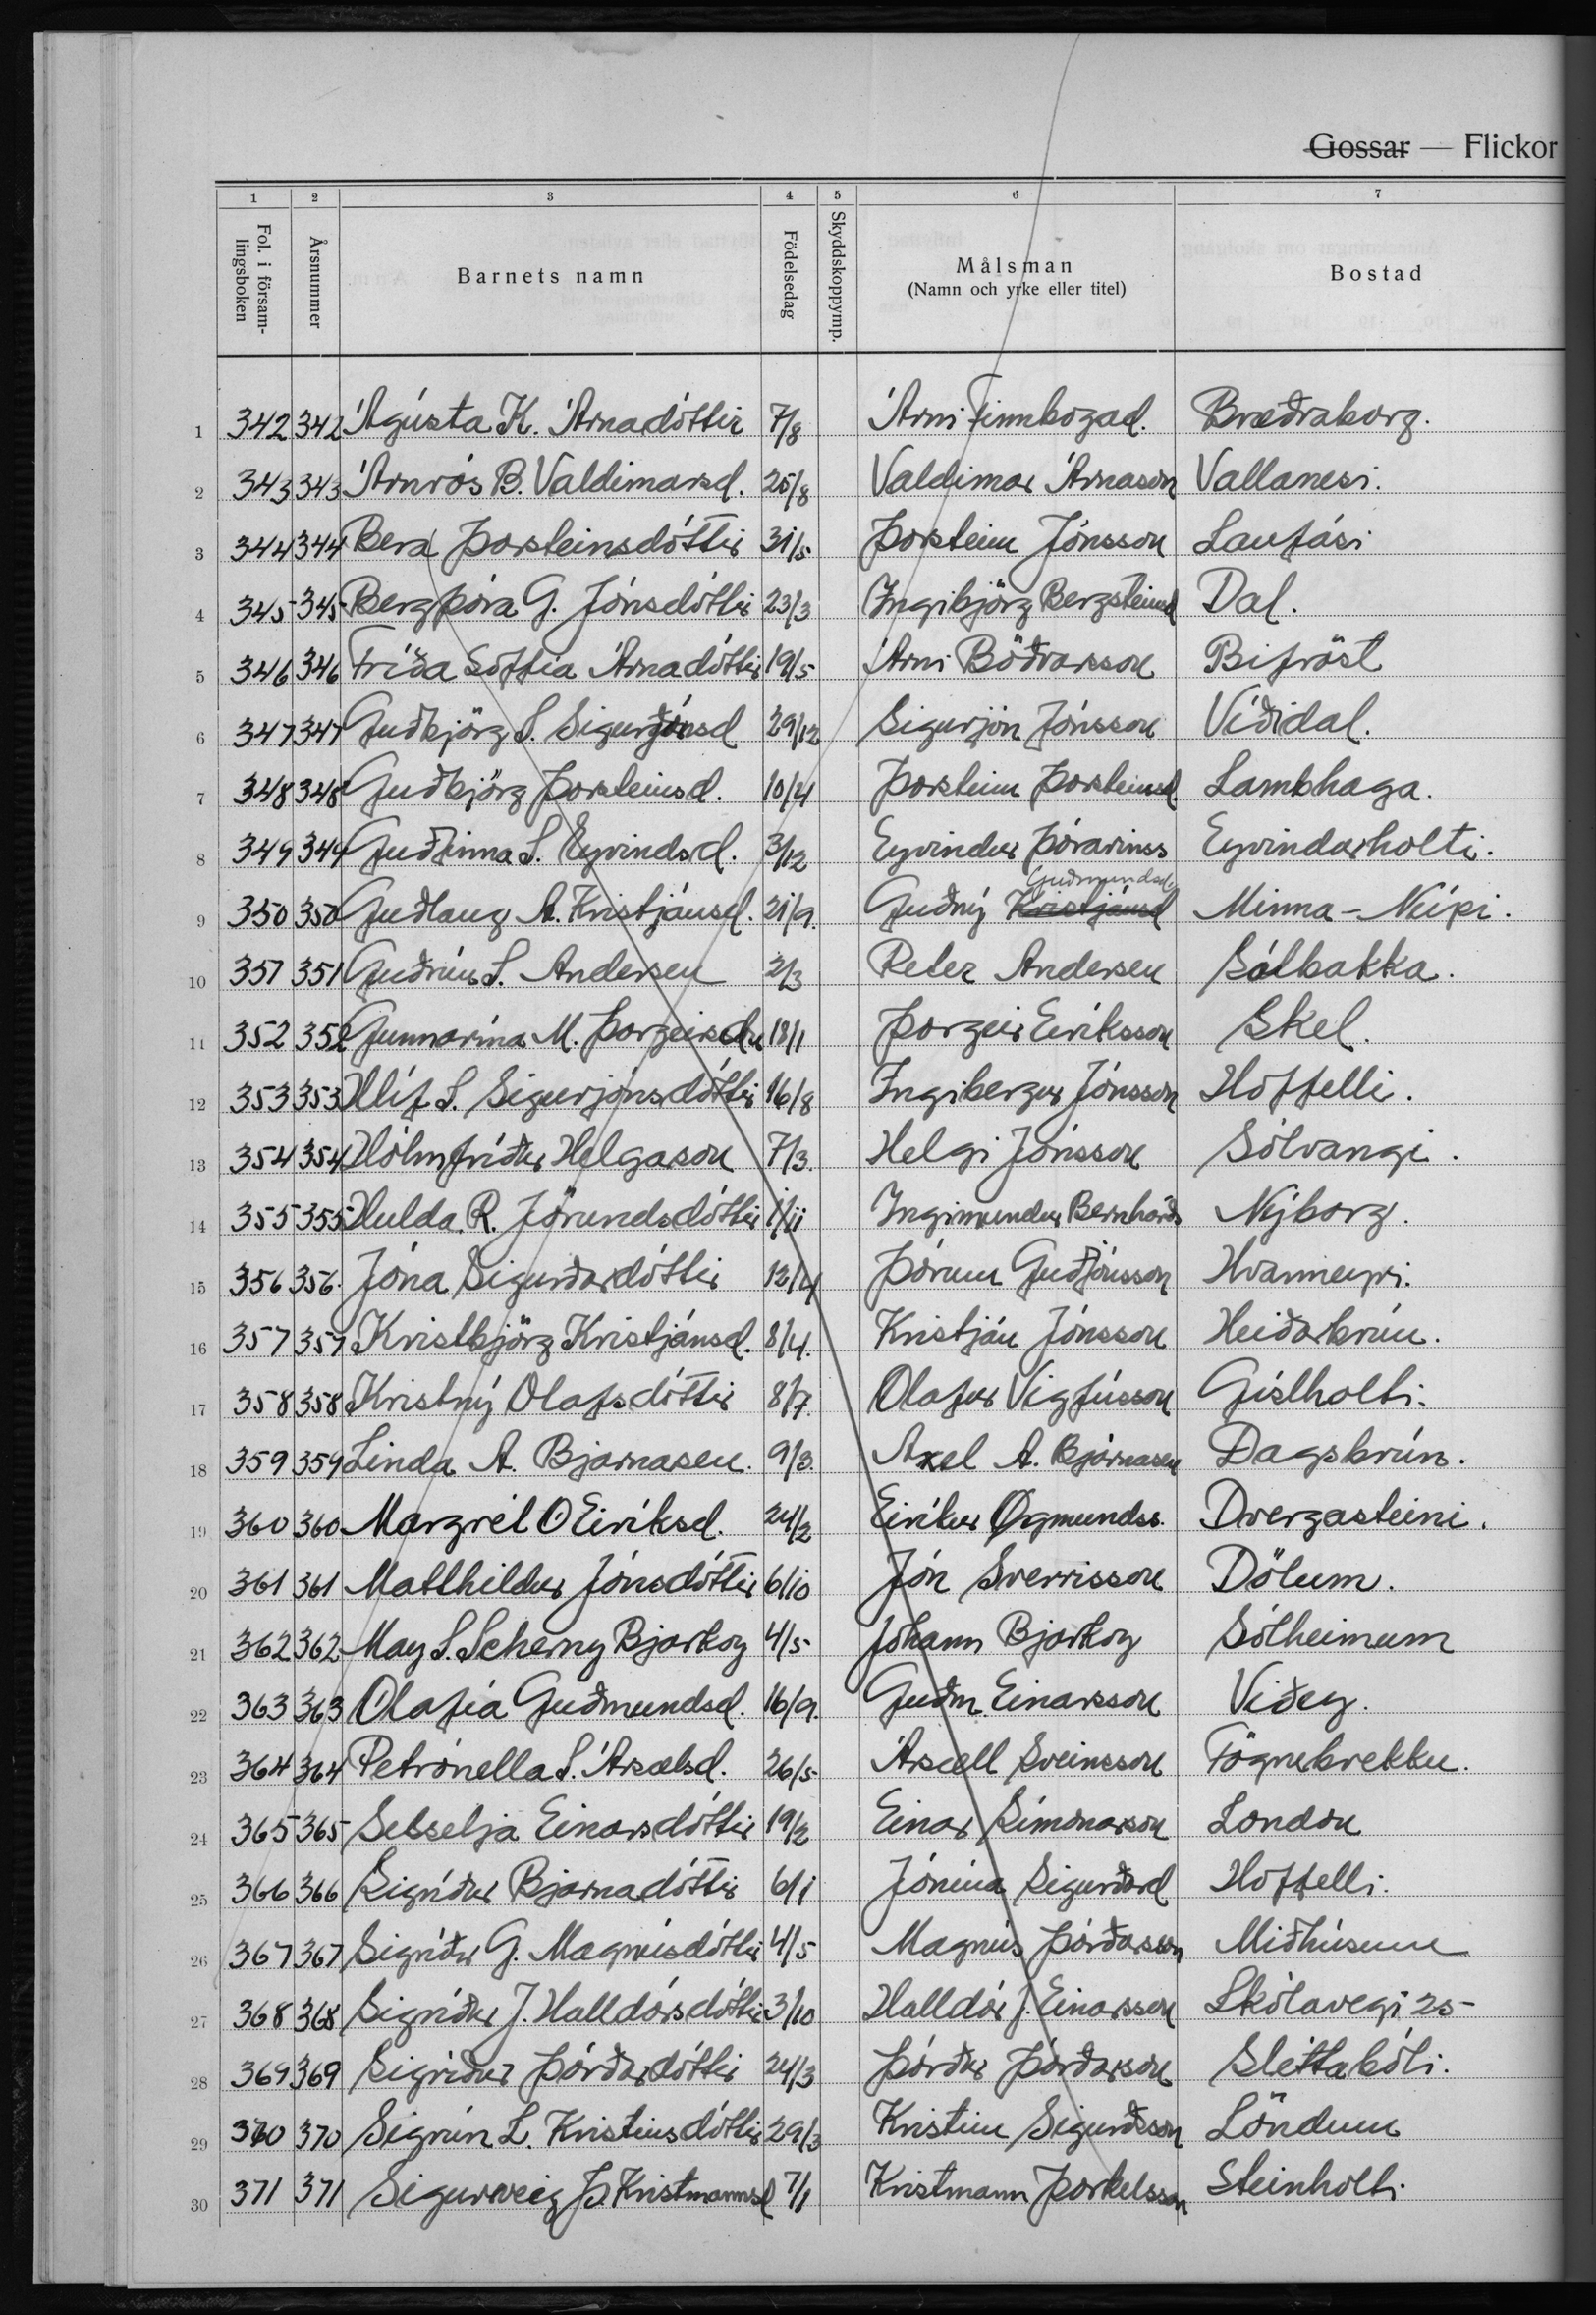 Gossar — Flickor
1 2 3 4 5 6 7
Fol. i församlingsboken Årsnummer Barnets namn Födelsedag Skyddskoppymp. Målsman (Namn och yrke eller titel) Bostad
1 342 342 Ágústa K. Árnadóttir 7/8 Árni Finnbogad. Bræðraborg.
2 343 343 Árnrós B. Valdimarsd. 25/8 Valdimar Árnason Vallanesi.
3 344 344 Bera Þorsteinsdóttir 31/5 Þorsteinn Jónsson Laufási
4 345 345 Bergþóra G. Jónsdóttir 23/3 Ingibjörg Bergsteinsd Dal.
5 346 346 Fríða Soffia Árnadóttir 19/5 Árni Böðvarsson Bifröst
6 347 347 Guðbjörg S. Sigurjónsd 29/12 Sigurjón Jónsson Víðidal.
7 348 348 Guðbjörg Þorsteinsd. 10/4 Þorsteinn Þorsteinsd. Lambhaga.
8 349 349 Guðfinna S. Eyvindsd. 3/12 Eyvindur Þórarinss Eyvindarholti.
9 350 350 Guðlaug A. Kristjánsd. 21/9. Guðný Kristjánsd Guðmundsd. Minna-Núpi.
10 351 351 Guðrún S. Andersen 2/3 Peter Andersen Sólbakka.
11 352 352 Gunnarína M. Þorgeirsdu 18/1 Þorgeir Eiríksson Skel.
12 353 353 Hlíf S. Sigurjónsdóttir 16/8 Ingibergur Jónsson Hoffelli.
13 354 354 Hólmfríður Helgason 7/3. Helgi Jónsson Sólvangi.
14 355 355 Hulda R. Jörundsdóttir 1/11 Ingimundur Bernhárðs Nýborg.
15 356 356. Jóna Sigurðardóttir 12/4 Þórunn Guðjónsson Hvanneyri.
16 357 357 Kristbjörg Kristjánsd. 8/4. Kristján Jónsson Heiðarbrún.
17 358 358 Kristný Olafsdóttir 8/7. Olafur Vigfússon Gíslholti.
18 359 359 Linda A. Bjarnasen. 9/3. Axel A. Bjarnasen Dagsbrún.
19 360 360 Margrét O Eiríksd. 24/2 Eiríkur Ögmundss. Dvergasteini.
20 361 361 Matthildur Jónsdóttir 6/10 Jón Sverrisson Dölum.
21 362 362 May S. Scherny Bjarkog 4/5 Johann Bjarkog Sólheimum
22 363 363 Olafía Guðmundsd. 16/9. Guðm. Einarsson Viðey.
23 364 364 Petrónella S. Ársælsd. 26/5 Ársæll Sveinsson Fögrubrekku.
24 365 365 Sesselja Einarsdóttir 19/2 Einar Símonarson London
25 366 366 Sigríður Bjarnadóttir 6/1 Jónína Sigurðard Hoffelli.
26 367 367 Sigríður G. Magnúsdóttir 4/5 Magnús Þórðarson Miðhúsum
27 368 368 Sigríður J. Halldórsdóttir 3/10 Halldór J. Einarsson Skólavegi 25
28 369 369 Sigríður Þórðardóttir 24/3 Þórður Þórðarson Sléttabóli.
29 370 370 Sigrún L. Kristinsdóttir 29/3 Kristinn Sigurðsson Löndum
30 371 371 Sigurveig Þ. Kristmannsd 7/1 Kristmann Þorkelsson Steinholti